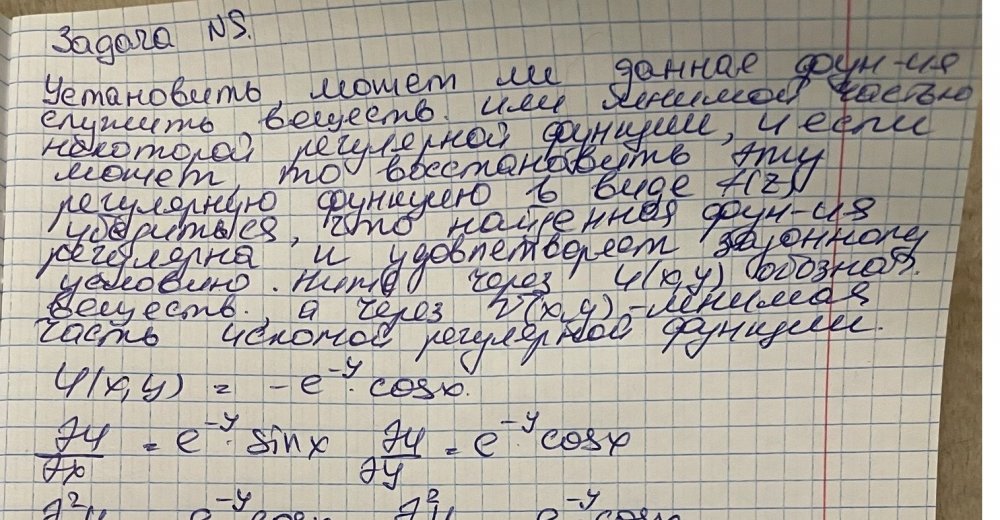 Задача №5.
Установить, может ли данная фун-ия
служить веществ. или мнимой частью
некоторой регулярной функции, и если
может, то восстановить эту
регулярную функцию в виде f(z)
убедиться, что найденная фун-ия
регулярна и удовлетворяет заданному
условию. Ниже через U(x,y) обознач.
веществ., а через V(x,y) - мнимая
часть искомой регулярной функции.
U(x,y) = -e^{-y} · cosx.
∂U/∂x = e^{-y} · sinx ∂U/∂y = e^{-y} · cosx
∂²U e^{-y} cosx ∂²U e^{-y} cosx